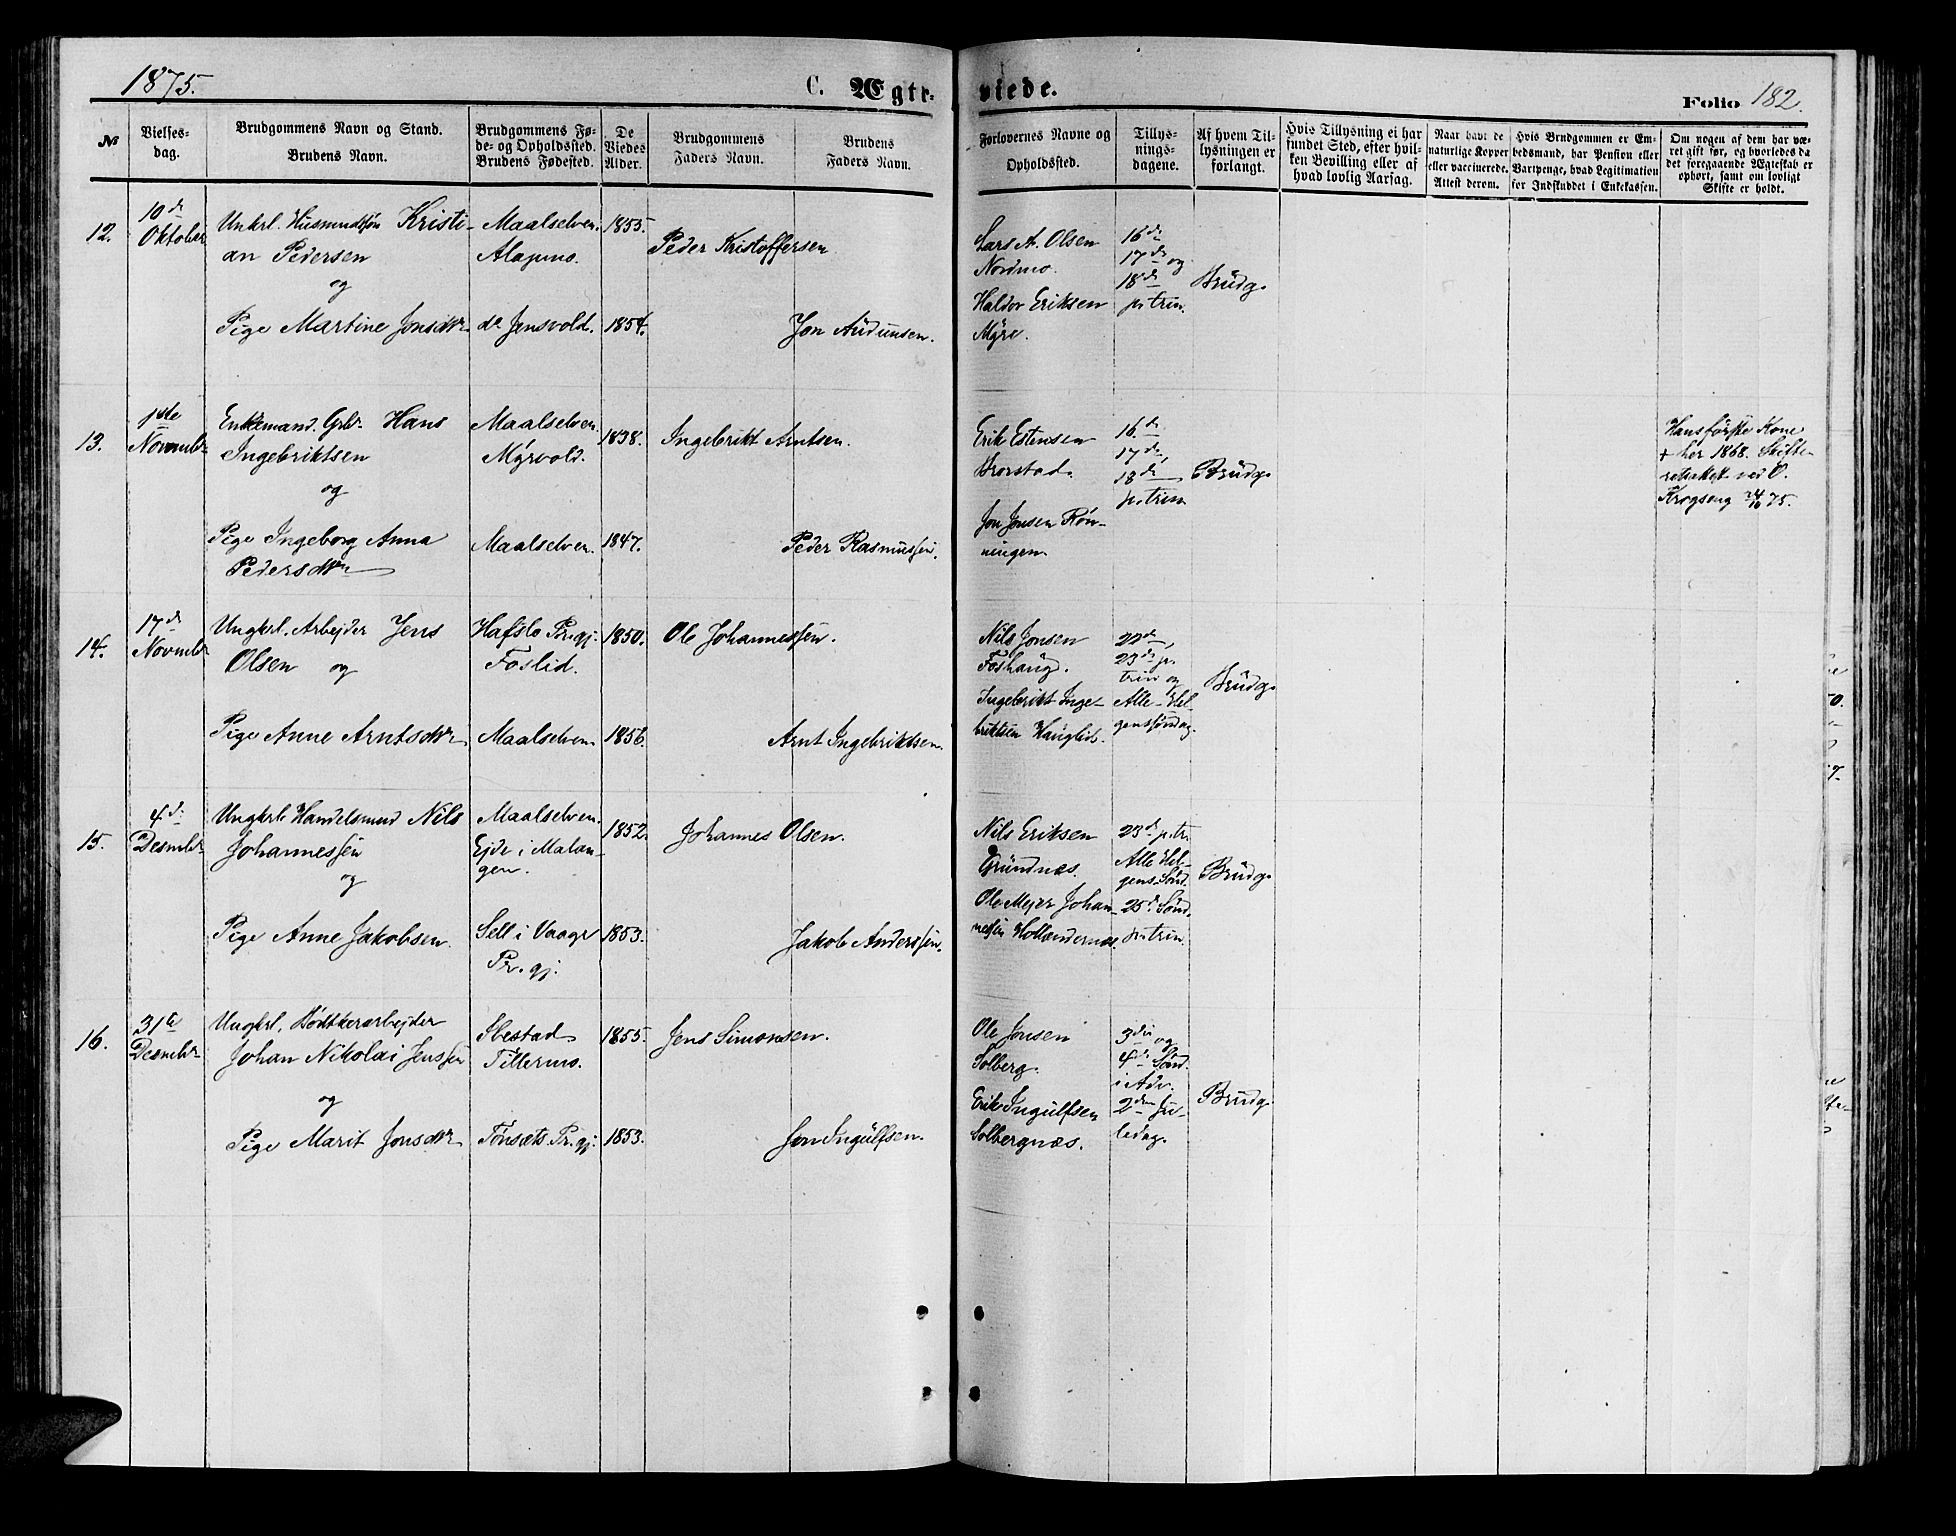 1875.
C. Ægtr-
viede.
Folio 182.
№
Vielses-
dag.
Brudgommens Navn og Stand.
Brudens Navn.
Brudgommens Fø-
de- og Opholdssted.
Brudens Fødested.
De
Viedes
Alder.
Brudgommens
Faders Navn.
Brudens
Faders Navn.
Forlovernes Navne og
Opholdssted.
Tillys-
nings-
dagene.
Af hvem Til-
lysningen er
forlangt.
Hvis Tillysning ei har
fundet Sted, efter hvil-
ken Bevilling eller af
hvad lovlig Aarsag.
Naar havt de
naturlige Kopper
eller vaccinerede.
Attest derom.
Hvis Brudgommen er Em-
bedsmand, har Pension eller
Vartpenge, hvad Legitimation
for Indskuddet i Enkekassen.
Om nogen af dem har væ-
ret gift før, og hvorledes da
det foregaaende Ægteskab er
ophørt, samt om lovligt
Skifte er holdt.
12.
10de
Oktober
Unkrl. Husmandssøn Kristi-
an Pedersen
og
Pige Martine Jonsdtr
Maalselven.
Alapmo.
do Jensvold.
1855.
1854.
Peder Kristoffersen
Jon Audunsen.
Lars A. Olsen
Nordmo.
Haldor Eriksen
Myre.
16de
17de og
18de
p. trin.
Brudg.
13.
1ste
Novembr
Enkemand. Grbr. Hans
Ingebriktsen
og
Pige Ingeborg Anna
Pedersdtr
Maalselven.
Myrvold.
Maalselven.
1838.
1847.
Ingebrikt Arntsen.
Peder Rasmussen.
Erik Estensen
Brorstad.
Jon Jonsen Røn-
ningen
16de
17de,
18de
p. trin
Brudg.
Hans første Kone
+ her 1868. Skifte-
retsattest ved O.
Krogseng 24/10 75.
14.
17de
Novembr
Ungkrl. Arbejder Jens
Olsen og
Pige Anne Arntsdtr
Hafslo Pr.gj.
Foslid.
Maalselven
1850.
1856.
Ole Johannessen.
Arnt Ingebriktsen
Nils Jonsen
Foshaug.
Ingebrikt Inge-
briktsen Hauglid.
22de,
23de p.
trin og
Alle-Hel-
genssøndag.
Brudg.
15.
4de
Desembr
Ungkrl. Handelsmand Nils
Johannessen
og
Pige Anne Jakobsen
Maalselven.
Ejde i Malan-
gen.
Sell i Vaage
Pr.gj.
1852.
1853.
Johannes Olsen.
Jakob Anderssen.
Nils Eriksen
Grundnæs.
Ole Mejer Johan-
nessen Hollendernæs.
23de p. tr.
Alle Hel-
gens. Sønd.
25de Sønd.
p. trin.
Brudg.
16.
31te
Desembr
Ungkrl. Bødtkerarbejder
Johan Nikolai Jenssen
og
Pige Marit Jonsdtr
Ibestad
Tillermo.
Tønsets Pr.gj.
1855.
1853.
Jens Simonsen.
Jon Ingulfsen.
Ole Jonsen
Solberg.
Erik Ingulfsen
Solbergnæs.
3die og
4de Sønd.
i Adv.
2den Ju-
ledag.
Brudg.